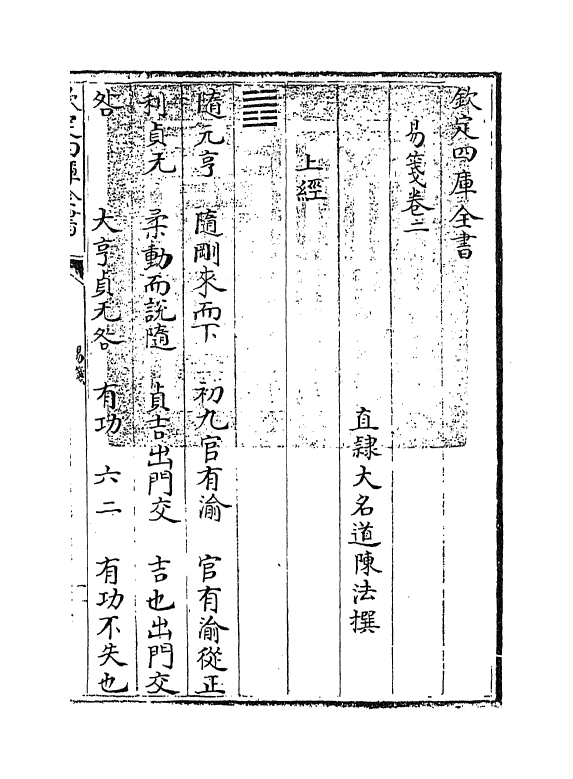 欽定四庫全書
易箋卷三
直隸大名道陳法撰
上經
䷐
隨元亨　隨剛來而下　初九官有渝　官有渝從正
利貞无　柔動而說隨　貞吉出門交　吉也出門交
咎　大亨貞无咎　有功　六二　有功不失也
欽定四庫全書
易箋